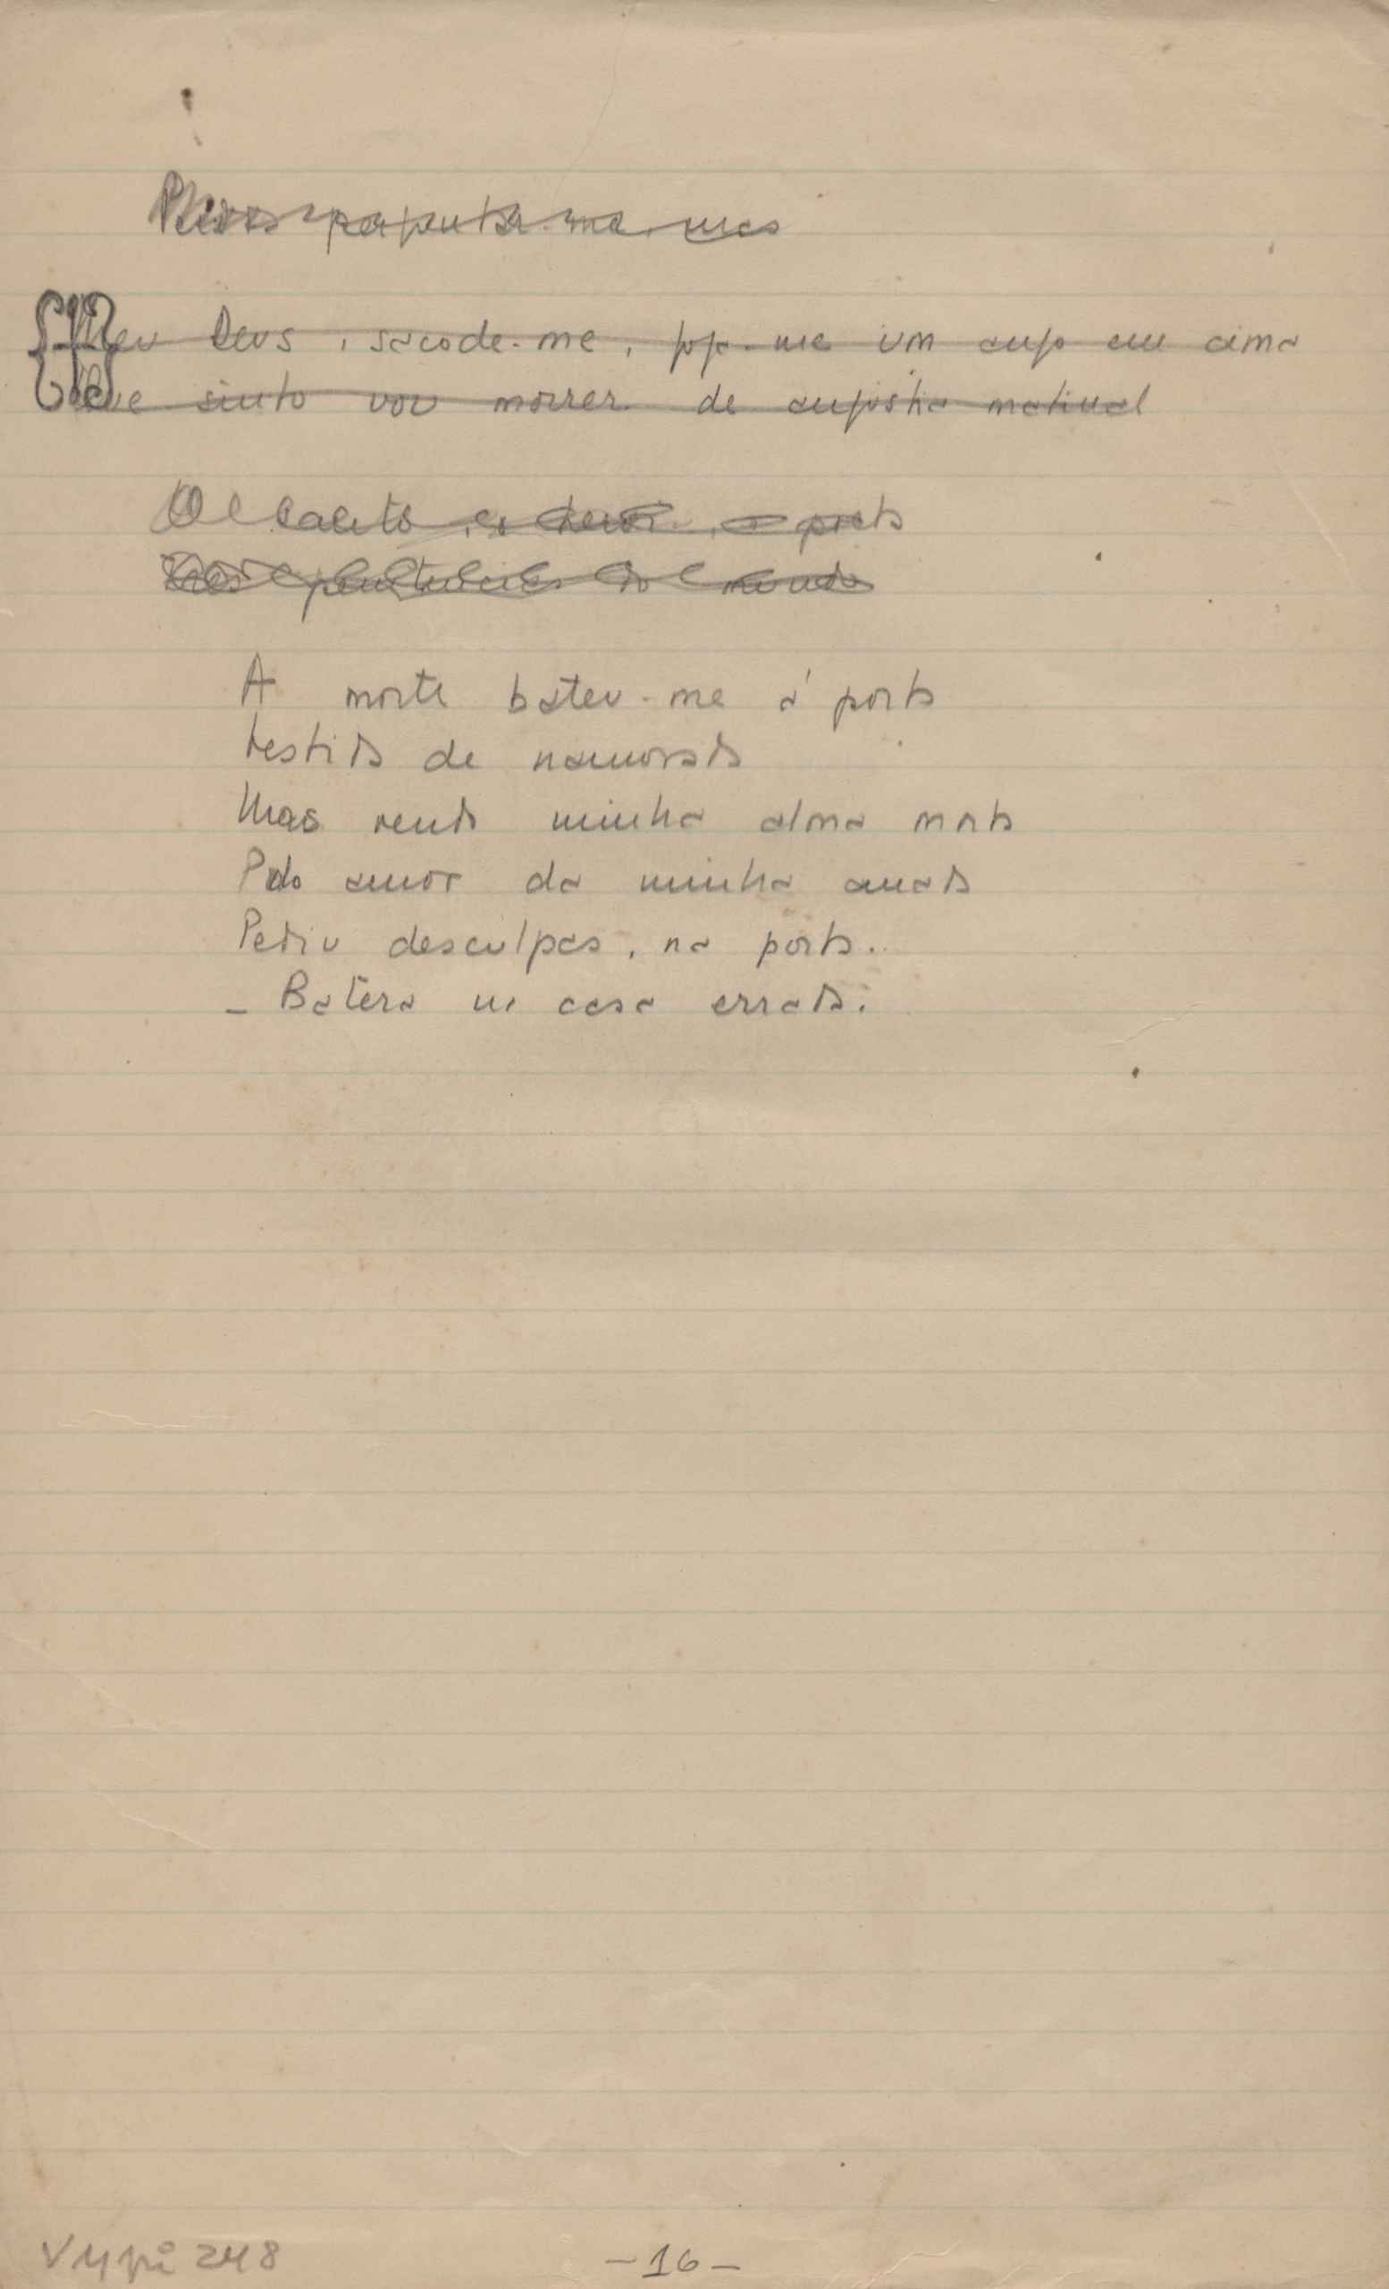 perguntar-me mas
Meu Deus, sacode-me, joga-me um anjo em cima
Que sinto vou morrer de angústia matinal
O o preto
do mundo
A morte bateu-me à porta
Vestida de namorada
Mas vendo minha alma morta
Pelo amor da minha amada
Pediu desculpas, na porta.
- Batera na casa errada.
V4pi 248
-16-